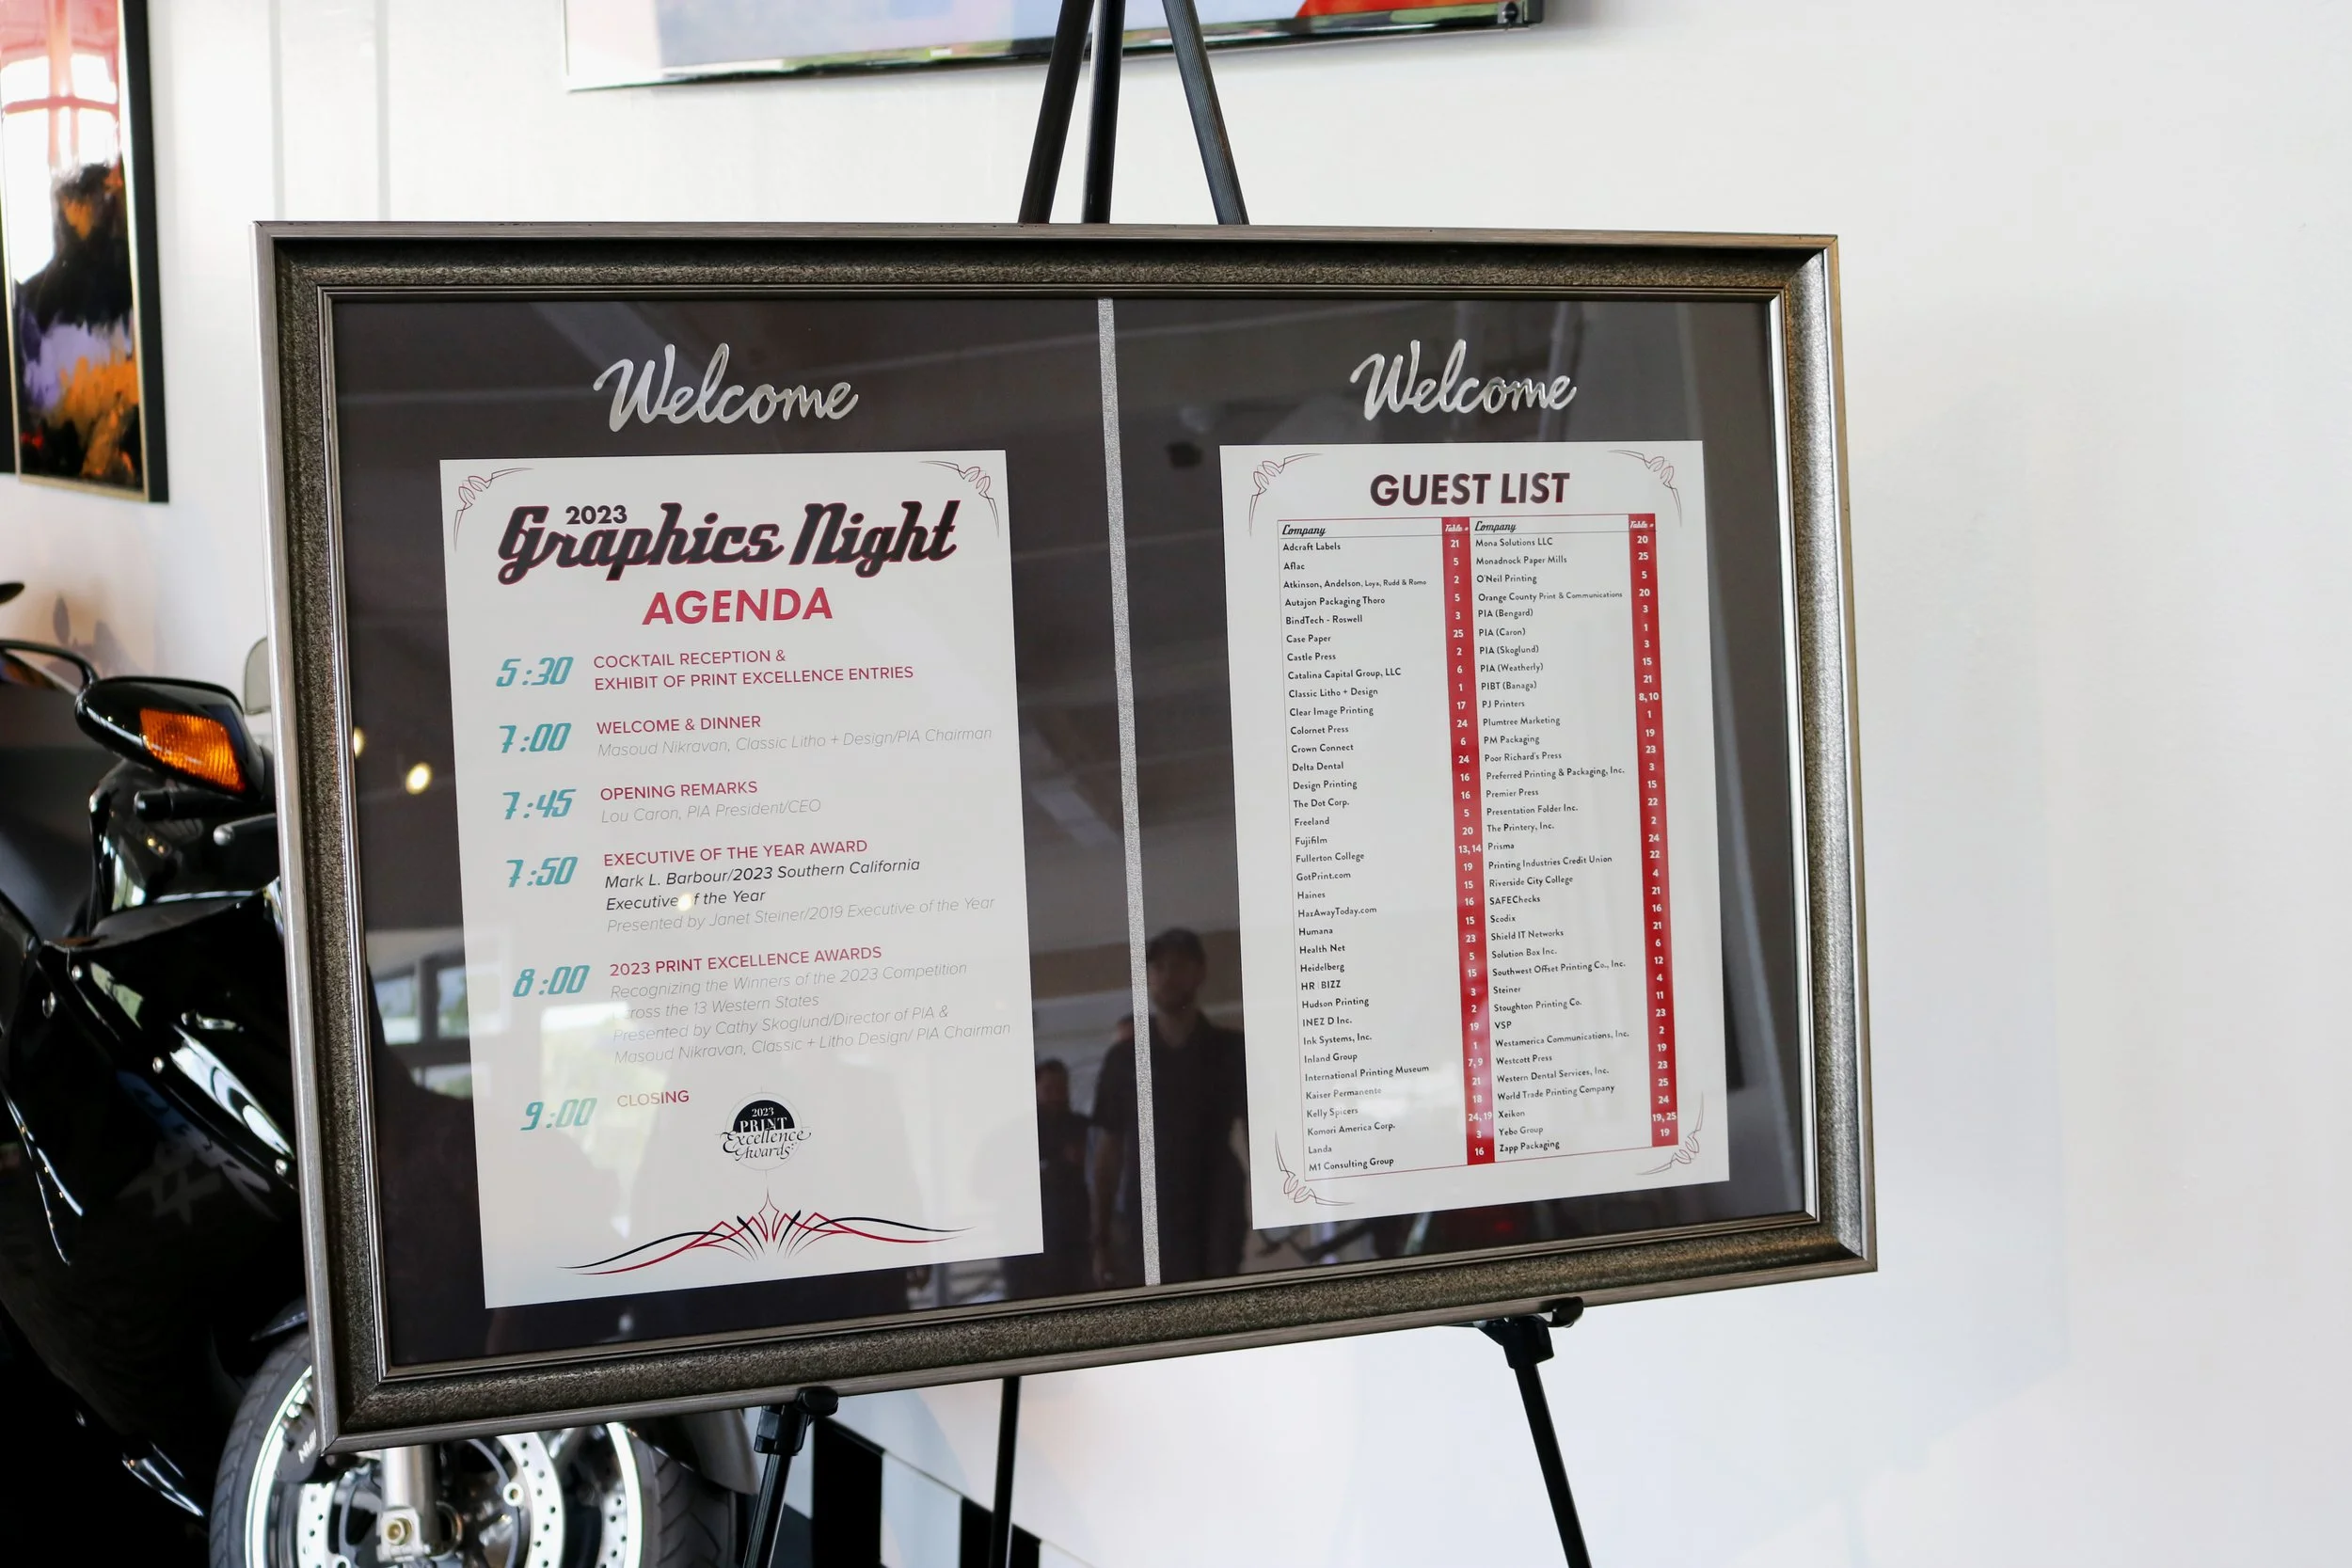 Welcome
2023
Graphics Night
AGENDA
5:30 COCKTAIL RECEPTION &
EXHIBIT OF PRINT EXCELLENCE ENTRIES
7:00 WELCOME & DINNER
Masoud Nikravan, Classic Litho + Design/PIA Chairman
7:45 OPENING REMARKS
Lou Caron, PIA President/CEO
7:50 EXECUTIVE OF THE YEAR AWARD
Mark L. Barbour/2023 Southern California
Executive of the Year
Presented by Janet Steiner/2019 Executive of the Year
8:00 2023 PRINT EXCELLENCE AWARDS
Recognizing the Winners of the 2023 Competition
Across the 13 Western States
Presented by Cathy Skoglund/Director of PIA &
Masoud Nikravan, Classic + Litho Design/ PIA Chairman
9:00 CLOSING
2023
PRINT
Excellence
Awards
Welcome
GUEST LIST
Company Table # Company Table #
Adcraft Labels 21 Mona Solutions LLC 20
Aflac 5 Monadnock Paper Mills 25
Atkinson, Andelson, Loya, Rudd & Romo 2 O'Neil Printing 5
Autajon Packaging Thoro 5 Orange County Print & Communications 20
BindTech - Roswell 3 PIA (Bengard) 3
Case Paper 25 PIA (Caron) 1
Castle Press 2 PIA (Skoglund) 3
Catalina Capital Group, LLC 6 PIA (Weatherly) 15
Classic Litho + Design 1 PIBT (Banaga) 21
Clear Image Printing 17 PJ Printers 8, 10
Colornet Press 24 Plumtree Marketing 1
Crown Connect 6 PM Packaging 19
Delta Dental 24 Poor Richard's Press 23
Design Printing 16 Preferred Printing & Packaging, Inc. 3
The Dot Corp. 16 Premier Press 15
Freeland 5 Presentation Folder Inc. 22
Fujifilm 20 The Printery, Inc. 2
Fullerton College 13, 14 Prisma 24
GotPrint.com 19 Printing Industries Credit Union 22
Haines 15 Riverside City College 4
HazAwayToday.com 16 SAFEChecks 21
Humana 15 Scodix 16
Health Net 23 Shield IT Networks 21
Heidelberg 5 Solution Box Inc. 6
HR BIZZ 15 Southwest Offset Printing Co., Inc. 12
Hudson Printing 3 Steiner 4
INEZ D Inc. 2 Stoughton Printing Co. 11
Ink Systems, Inc. 19 VSP 23
Inland Group 1 Westamerica Communications, Inc. 2
International Printing Museum 7, 9 Westcott Press 19
Kaiser Permanente 21 Western Dental Services, Inc. 23
Kelly Spicers 18 World Trade Printing Company 25
Komori America Corp. 24, 19 Xeikon 24
Landa 3 Yebo Group 19, 25
M1 Consulting Group 16 Zapp Packaging 19